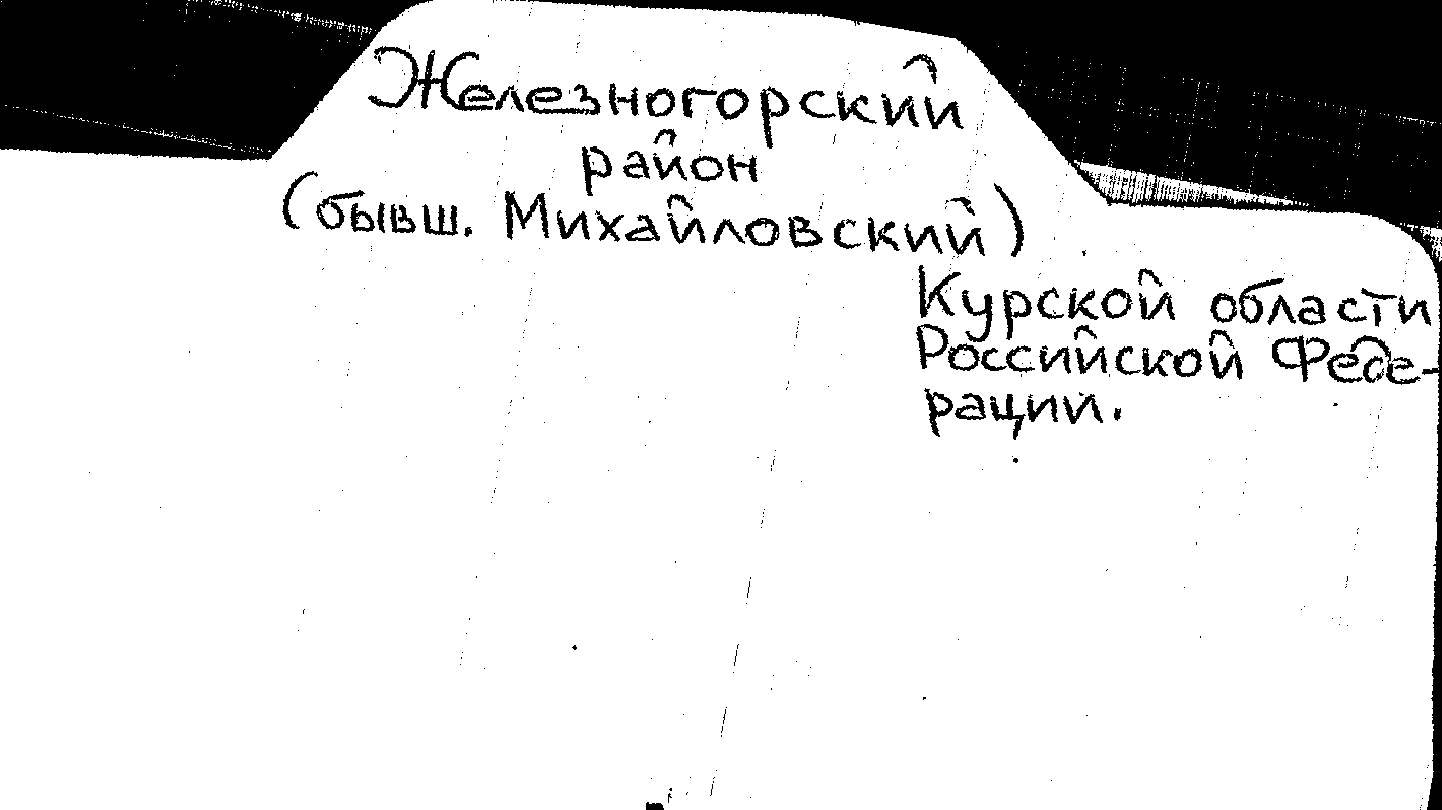 Железногорский
район
(бывш. Михайловский)
Курской области
Российской Феде-
рации.